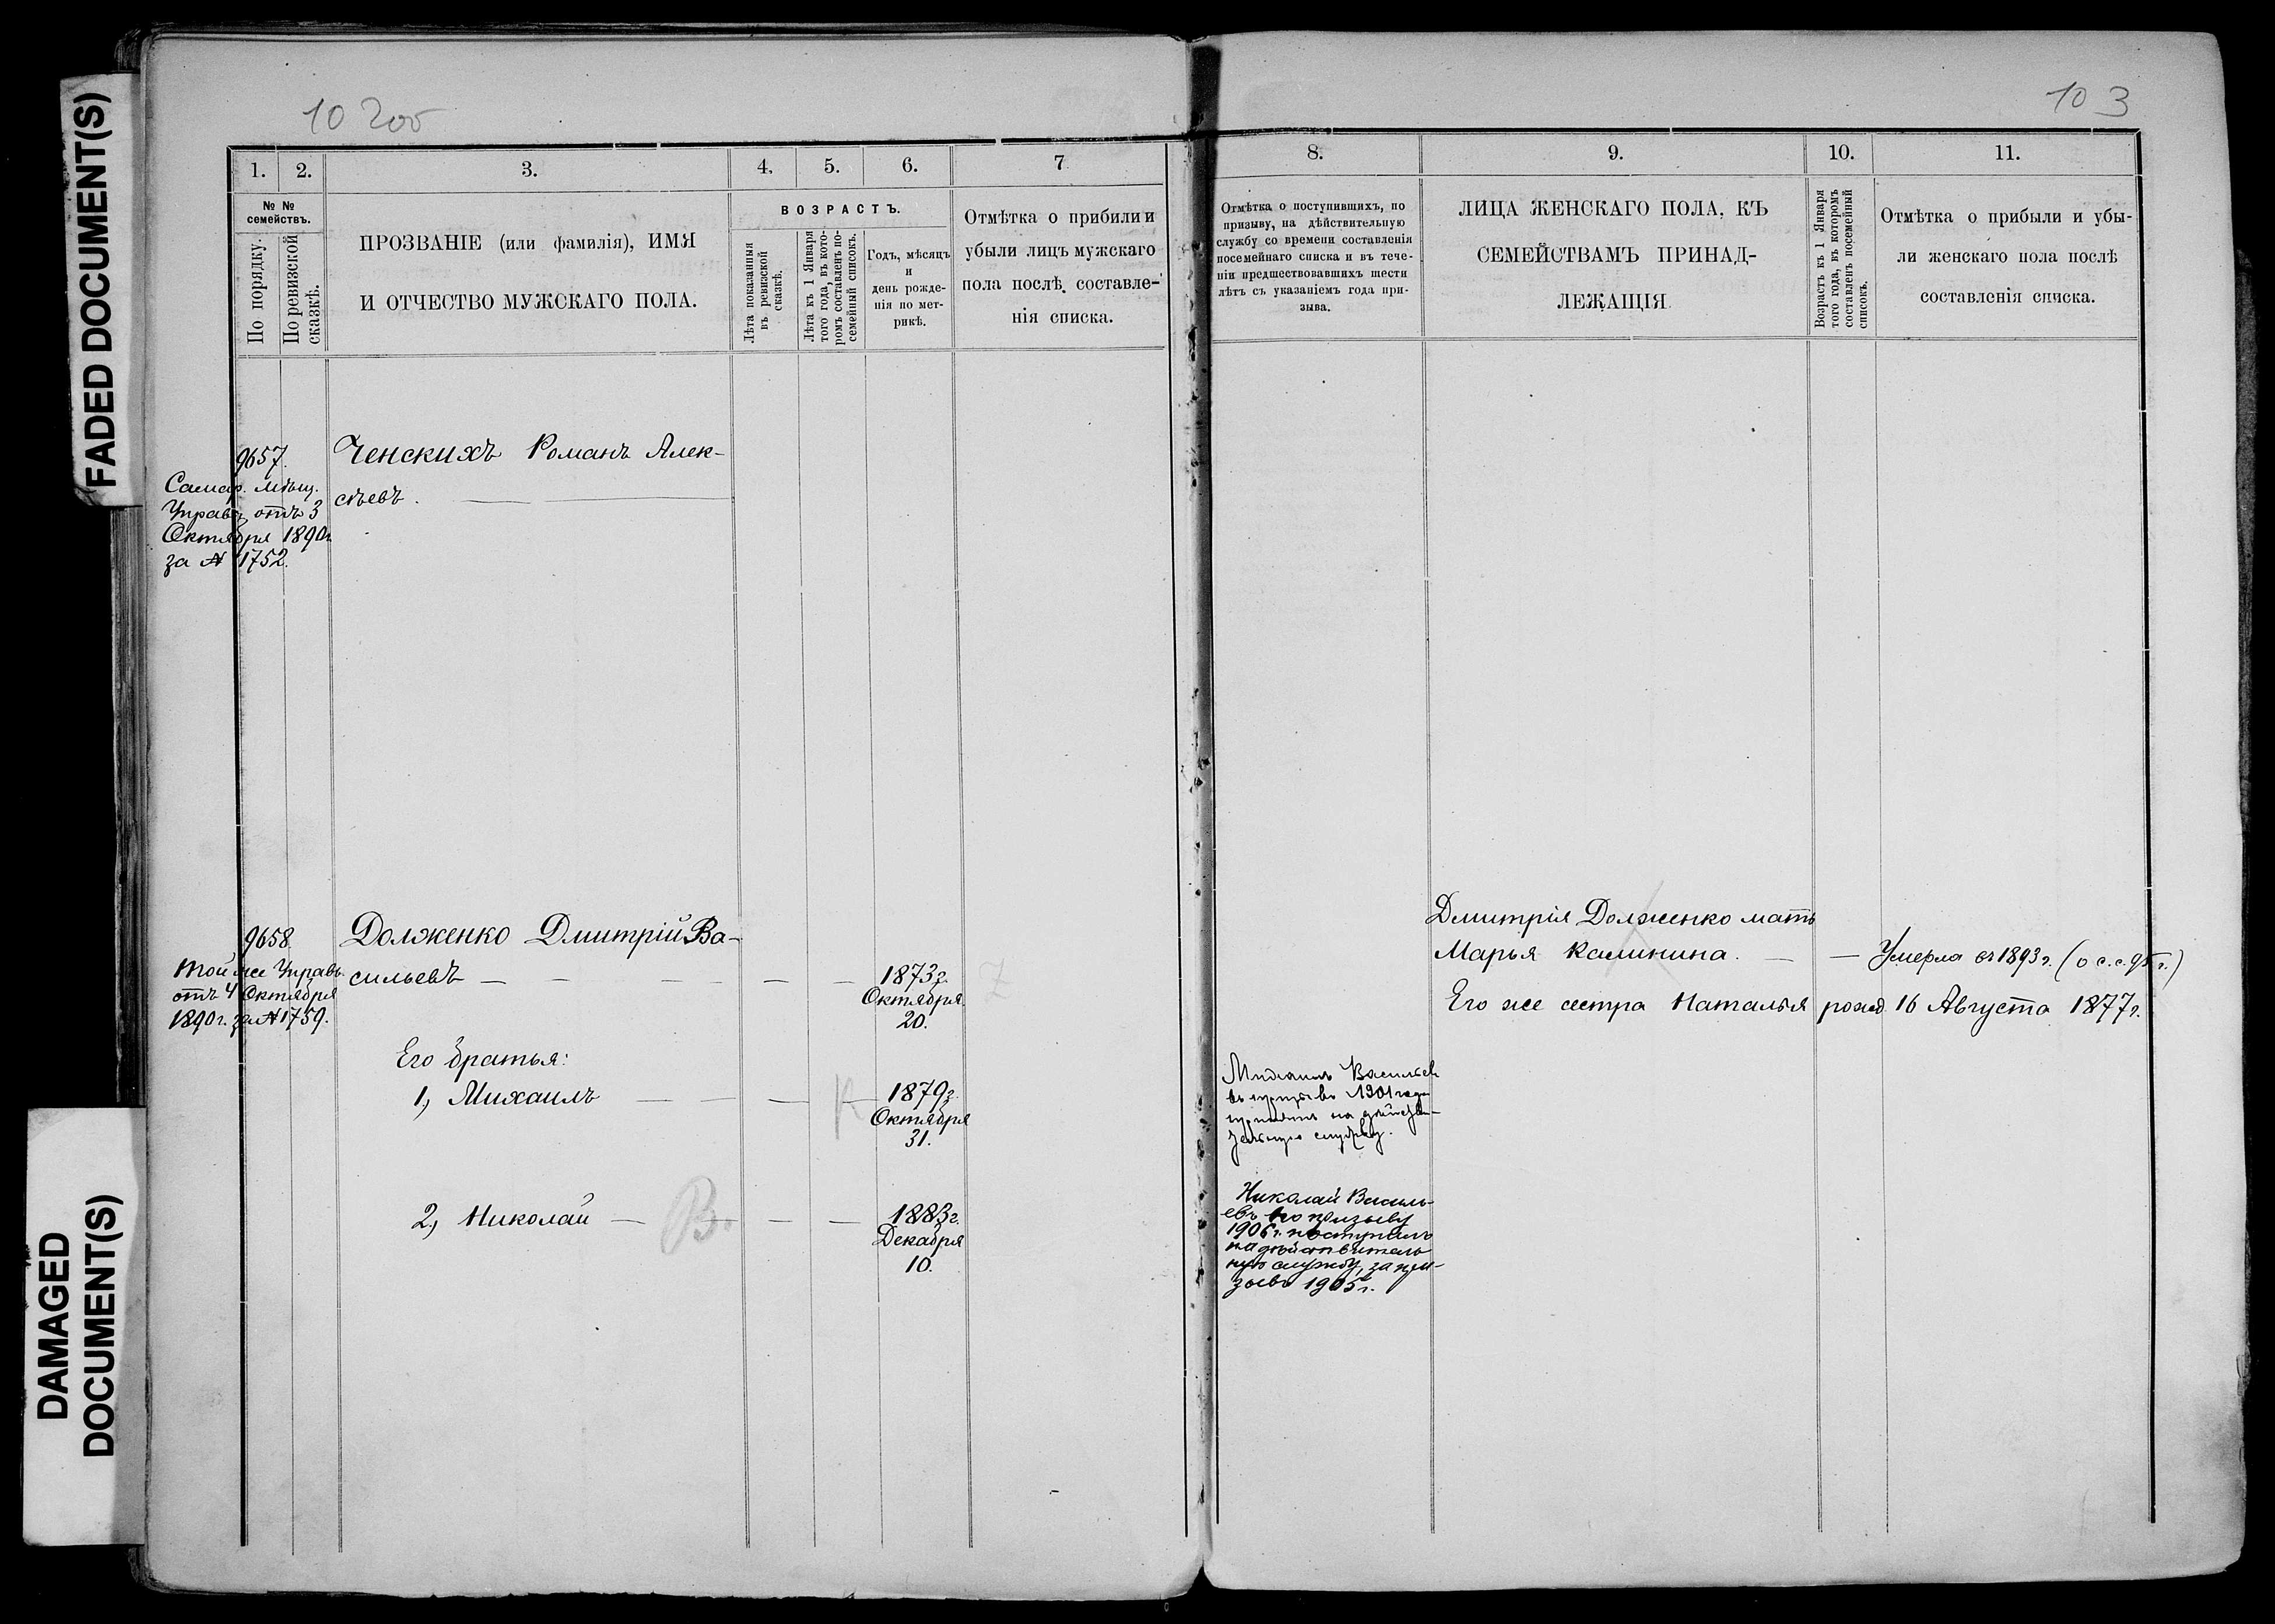 FADED DOCUMENT(S)
DAMAGED
DOCUMENT(S)
10 200
1.
2.
3.
4.
5.
6.
7
№ №
семействъ.
По порядку.
По ревизской
сказкѣ.
ПРОЗВАНІЕ (или фамилія), ИМЯ
И ОТЧЕСТВО МУЖСКАГО ПОЛА.
ВОЗРАСТЪ.
Лѣта показанныя
въ ревизской
сказкѣ.
Лѣта къ 1 Января
того года, въ кото-
ромъ составленъ по-
семейный списокъ.
Годъ, мѣсяцъ
и
день рожде-
нія по мет-
рикѣ.
Отмѣтка о прибыли и
убыли лицъ мужскаго
пола послѣ составле-
нія списка.
9657.
Самар. мѣщ.
Управы отъ 3
Октября 1890г.
за № 1752.
Ченскихъ Романъ Алек-
сѣевъ.
9658
Той же Управы
отъ 4 Октября
1890г. за № 1759.
Долженко Дмитрій Ва-
сильевъ
1873г.
Октября
20.
Его братья:
1, Михаилъ
1879г.
Октября
31.
2, Николай
В.
1883г.
Декабря
10.
10 3
8.
9.
10.
11.
Отмѣтка о поступившихъ, по
призыву, на дѣйствительную
службу со времени составленія
посемейнаго списка и въ тече-
ніи предшествовавшихъ шести
лѣтъ съ указаніемъ года при-
зыва.
ЛИЦА ЖЕНСКАГО ПОЛА, КЪ
СЕМЕЙСТВАМЪ ПРИНАД-
ЛЕЖАЩІЯ
Возрастъ къ 1 Января
того года, въ которомъ
составленъ посемейный
списокъ.
Отмѣтка о прибыли и убы-
ли женскаго пола послѣ
составленія списка.
Дмитрія Долженко мать
Марья Калинина.
Умерла въ 1893г. (о с.с. 95 г.)
Его же сестра Наталья рожд. 16 Августа 1877г.
Михаилъ Васильев
1901 года
принятъ на дѣйстви-
тельную службу.
Николай Василь-
евъ по призыву
1906г. поступилъ
на дѣйствитель
ную службу, за при-
зывъ 1905г.